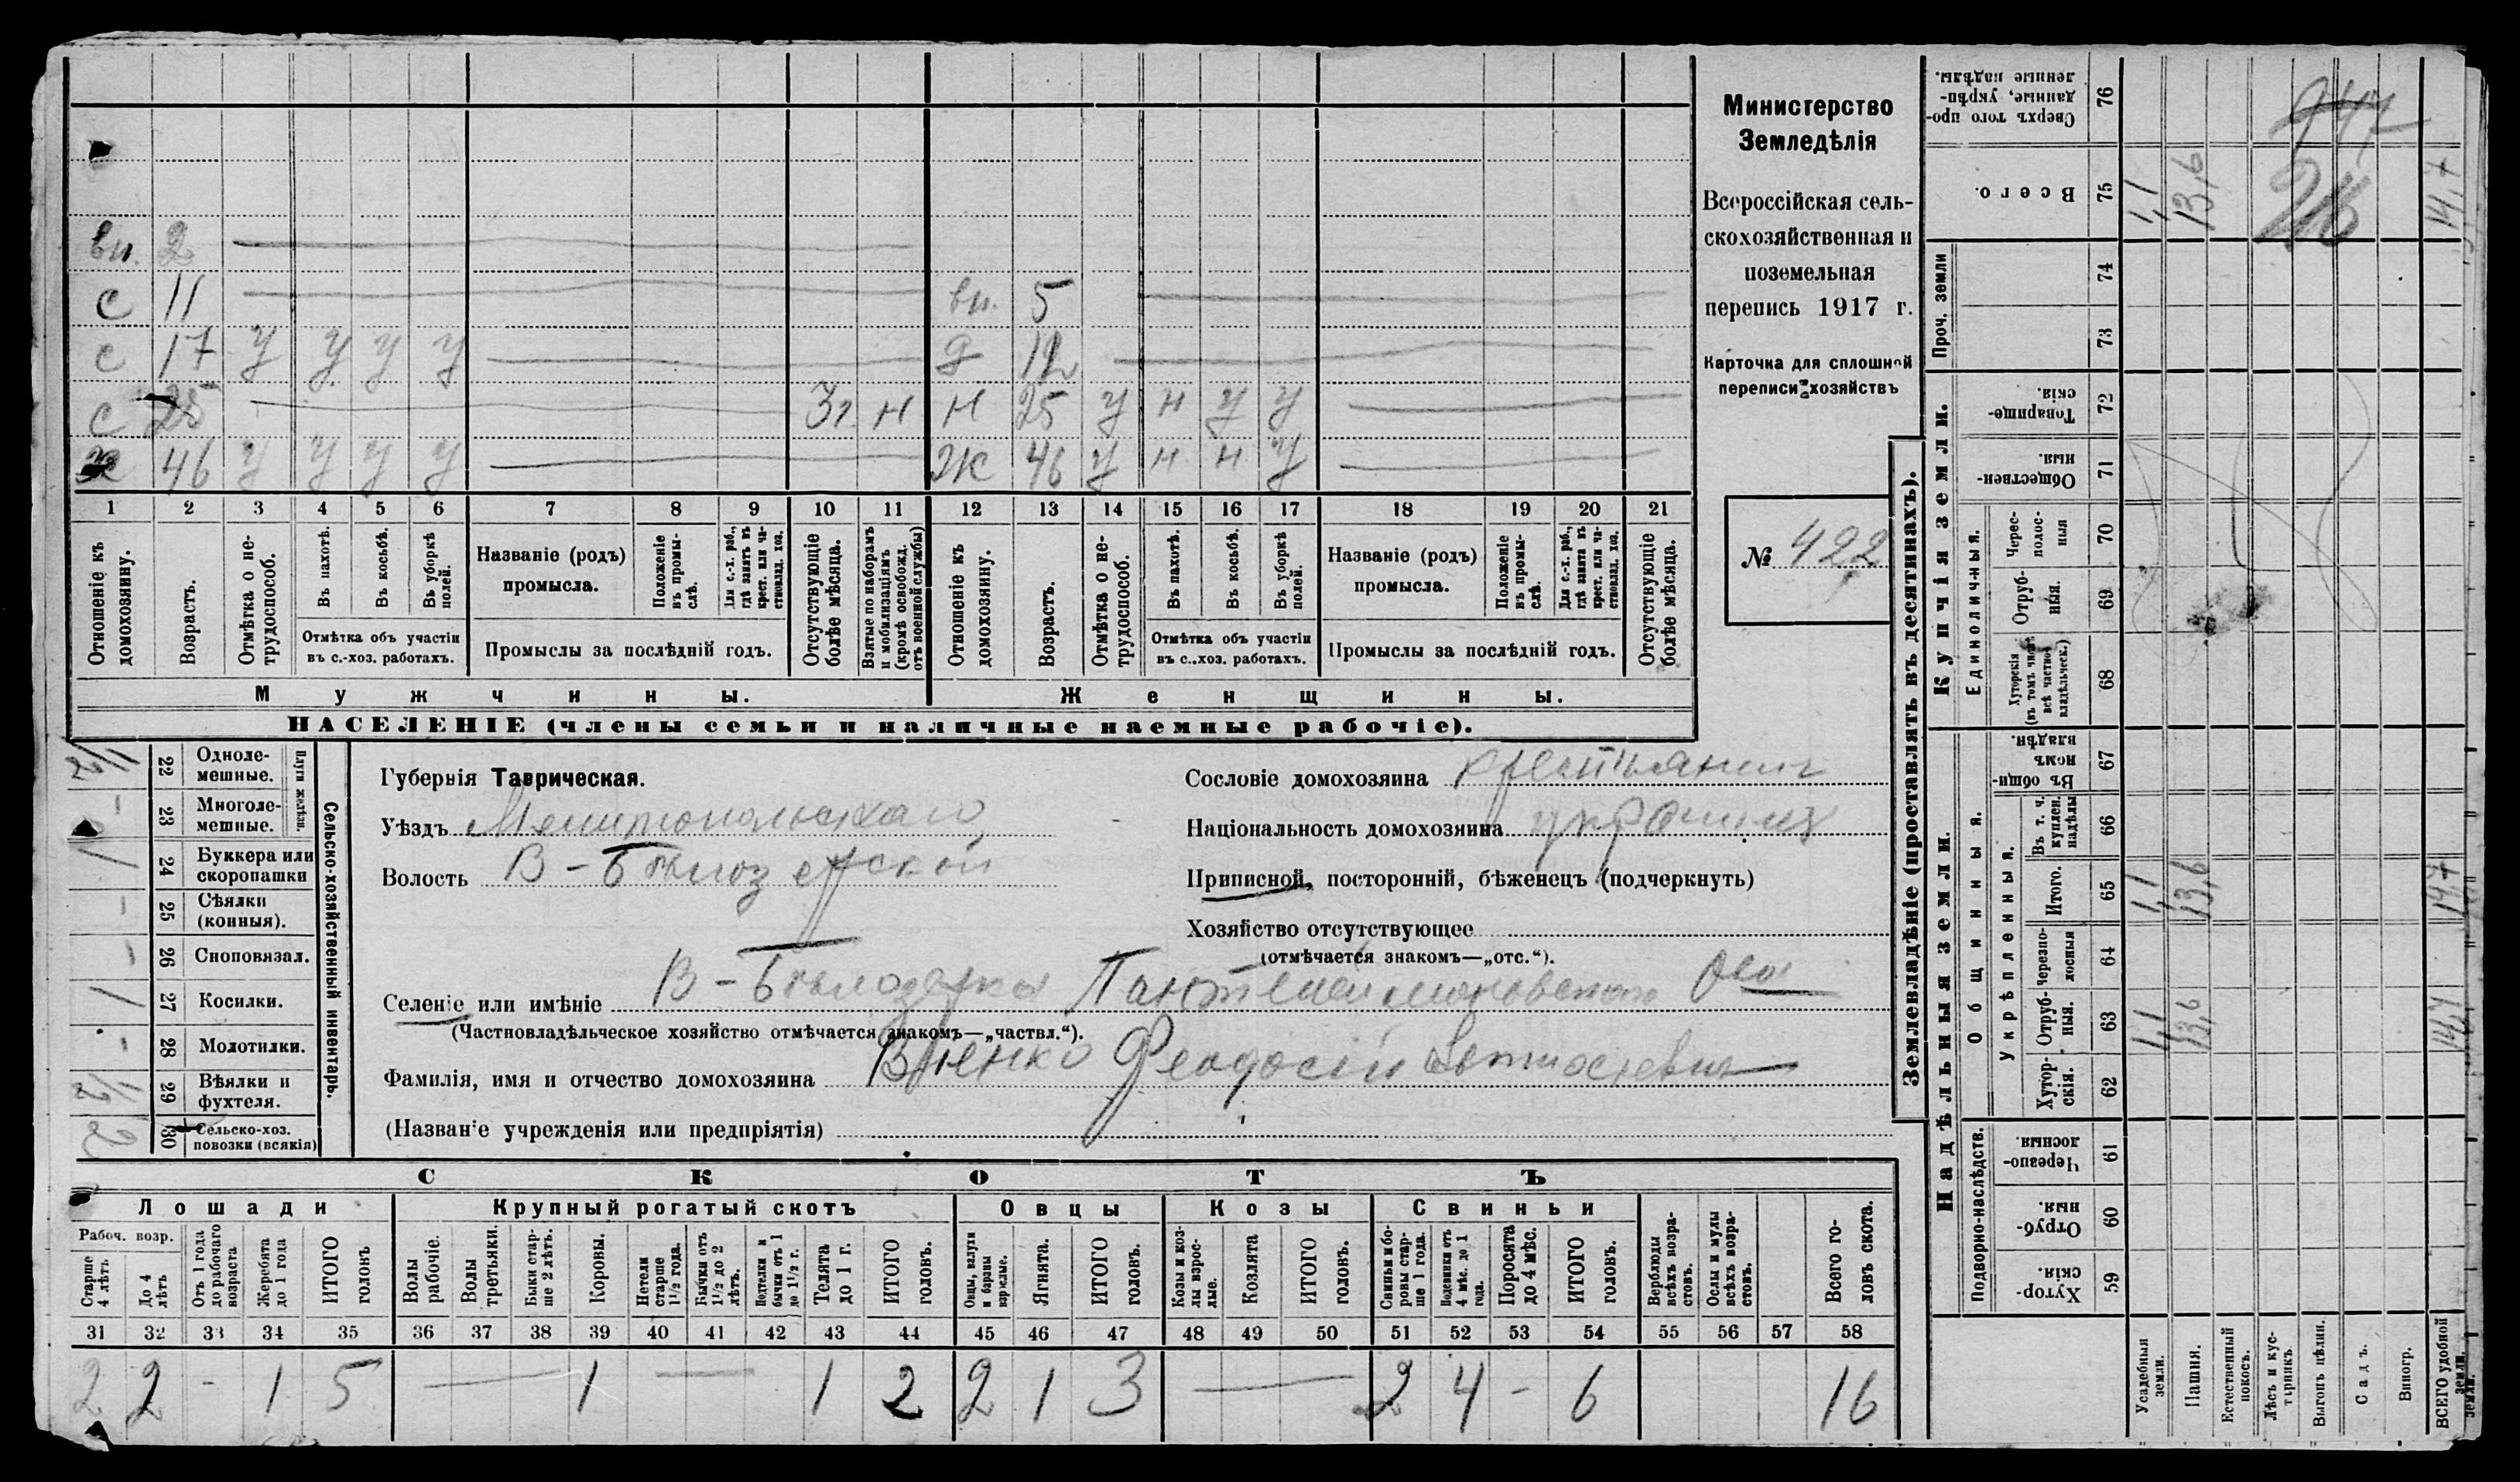 вн. 2
с 11 вн. 5
с 17 у у у у д 12
с 25 3 г. н н 25 у н у у
х 46 у у у у ж 46 у н н у
1 2 3 4 5 6 7 8 9 10 11 12 13 14 15 16 17 18 19 20 21
Отношеніе къ домохозяину.
Возрастъ.
Отмѣтка о не-трудоспособ.
Въ пахотѣ.
Въ косьбѣ.
Въ уборкѣ полей.
Отмѣтка объ участіи
въ с.-хоз. работахъ.
Названіе (родъ)
промысла.
Положеніе въ промы-слѣ.
Для с.-х. раб., гдѣ занятъ въ крест. или ча-стновлад. хоз.
Промыслы за послѣдній годъ.
Отсутствующіе болѣе мѣсяца.
Взятые по наборамъ и мобилизаціямъ (кромѣ освобожд. отъ военной службы)
Отношеніе къ домохозяину.
Возрастъ.
Отмѣтка о не-трудоспособ.
Въ пахотѣ.
Въ косьбѣ.
Въ уборкѣ полей.
Отмѣтка объ участіи
въ с.-хоз. работахъ.
Названіе (родъ)
промысла.
Положеніе въ промы-слѣ.
Для с.-х. раб., гдѣ занята въ крест. или ча-стновлад. хоз.
Промыслы за послѣдній годъ.
Отсутствующіе болѣе мѣсяца.
Мужчины.
Женщины.
НАСЕЛЕНІЕ (члены семьи и наличные наемные рабочіе).
Министерство
Земледѣлія
Всероссійская сель-
скохозяйственная и
поземельная
перепись 1917 г.
Карточка для сплошной
переписи хозяйствъ
№ 422
1/2 22 Одноле-мешные.
- 23 Многоле-мешные.
Плуги желѣзн.
1 24 Буккера или скоропашки
- 25 Сѣялки (конныя).
- 26 Сноповязал.
1 27 Косилки.
- 28 Молотилки.
1/2 29 Вѣялки и фухтеля.
2 30 Сельско-хоз. повозки (всякія)
Сельско-хозяйственный инвентарь.
Губернія Таврическая.
Уѣздъ Мелитопольскаго
Волость В-Бѣлозерской
Сословіе домохозяина крестьянинъ
Національность домохозяина украинецъ
Приписной, посторонній, бѣженецъ (подчеркнуть)
Хозяйство отсутствующее
(отмѣчается знакомъ—„отс.“).
Селеніе или имѣніе В-Бѣлозерка Пантелеимоновского Ова
(Частновладѣльческое хозяйство отмѣчается знакомъ—„частвл.“).
Фамилія, имя и отчество домохозяина Феодосій
(Названіе учрежденія или предпріятія)
СКОТЪ
Лошади
Крупный рогатый скотъ
Овцы
Козы
Свиньи
Рабоч. возр.
Старше 4 лѣтъ
До 4 лѣтъ
Отъ 1 года до рабочаго возраста
Жеребята до 1 года
ИТОГО головъ
Волы рабочіе.
Волы третьяки.
Быки стар-ше 2 лѣтъ.
Коровы.
Нетели старше 1 1/2 года.
Бычки отъ 1 1/2 до 2 лѣтъ.
Подтелки и бычки отъ 1 до 1 1/2 г.
Телята до 1 г.
ИТОГО головъ.
Овцы, валухи и бараны взрослые.
Ягнята.
ИТОГО головъ.
Козы и коз-лы взрос-лые.
Козлята
ИТОГО головъ.
Свиньи и бо-ровы стар-ше 1 года.
Подсвинки отъ 4 мѣс. до 1 года.
Поросята до 4 мѣс.
ИТОГО головъ.
Верблюды всѣхъ возра-стовъ.
Ослы и мулы всѣхъ возра-стовъ.
Всего го-ловъ скота.
31 32 33 34 35 36 37 38 39 40 41 42 43 44 45 46 47 48 49 50 51 52 53 54 55 56 57 58
2 2 - 1 5 1 1 2 2 1 3 2 4 - 6 16
Землевладѣніе (проставлять въ десятинахъ).
Сверхъ того про-данные, укрѣп-ленные надѣлы. 76
Всего. 75 1,1 13,6 14,7
Проч. земли 74
73
Купчія земли.
Товарище-скія. 72
Обществен-ныя. 71
Единоличныя.
Черес-полос-ныя 70
Отруб-ныя. 69
Хуторскія (въ томъ числѣ всѣ частно-владѣльческ.) 68
Надѣльныя земли.
Общинныя.
Въ общи-номъ владѣн. 67
Укрѣпленныя.
Въ т. ч. куплен. надѣлы 66
Итого. 65 1,1 13,6 14,7
Черезпо-лосныя 64
Отруб-ныя. 63 1,1 13,6 14,7
Хутор-скія. 62
Подворно-наслѣдств.
Черезпо-лосныя. 61
Отруб-ныя. 60
Хутор-скія. 59
Усадебныя земли.
Пашня.
Естественный покосъ.
Лѣсъ и кус-тарникъ.
Выгонъ цѣлин.
Садъ.
Виногр.
ВСЕГО удобной земли.